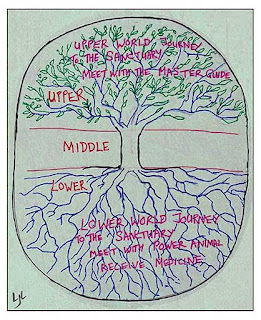 UPPER WORLD JOURNEY
TO THE SANCTUARY
MEET WITH THE MASTER GUIDE
UPPER
MIDDLE
LOWER
LOWER WORLD JOURNEY
TO THE SANCTUARY
MEET WITH POWER ANIMAL
RECEIVE MEDICINE